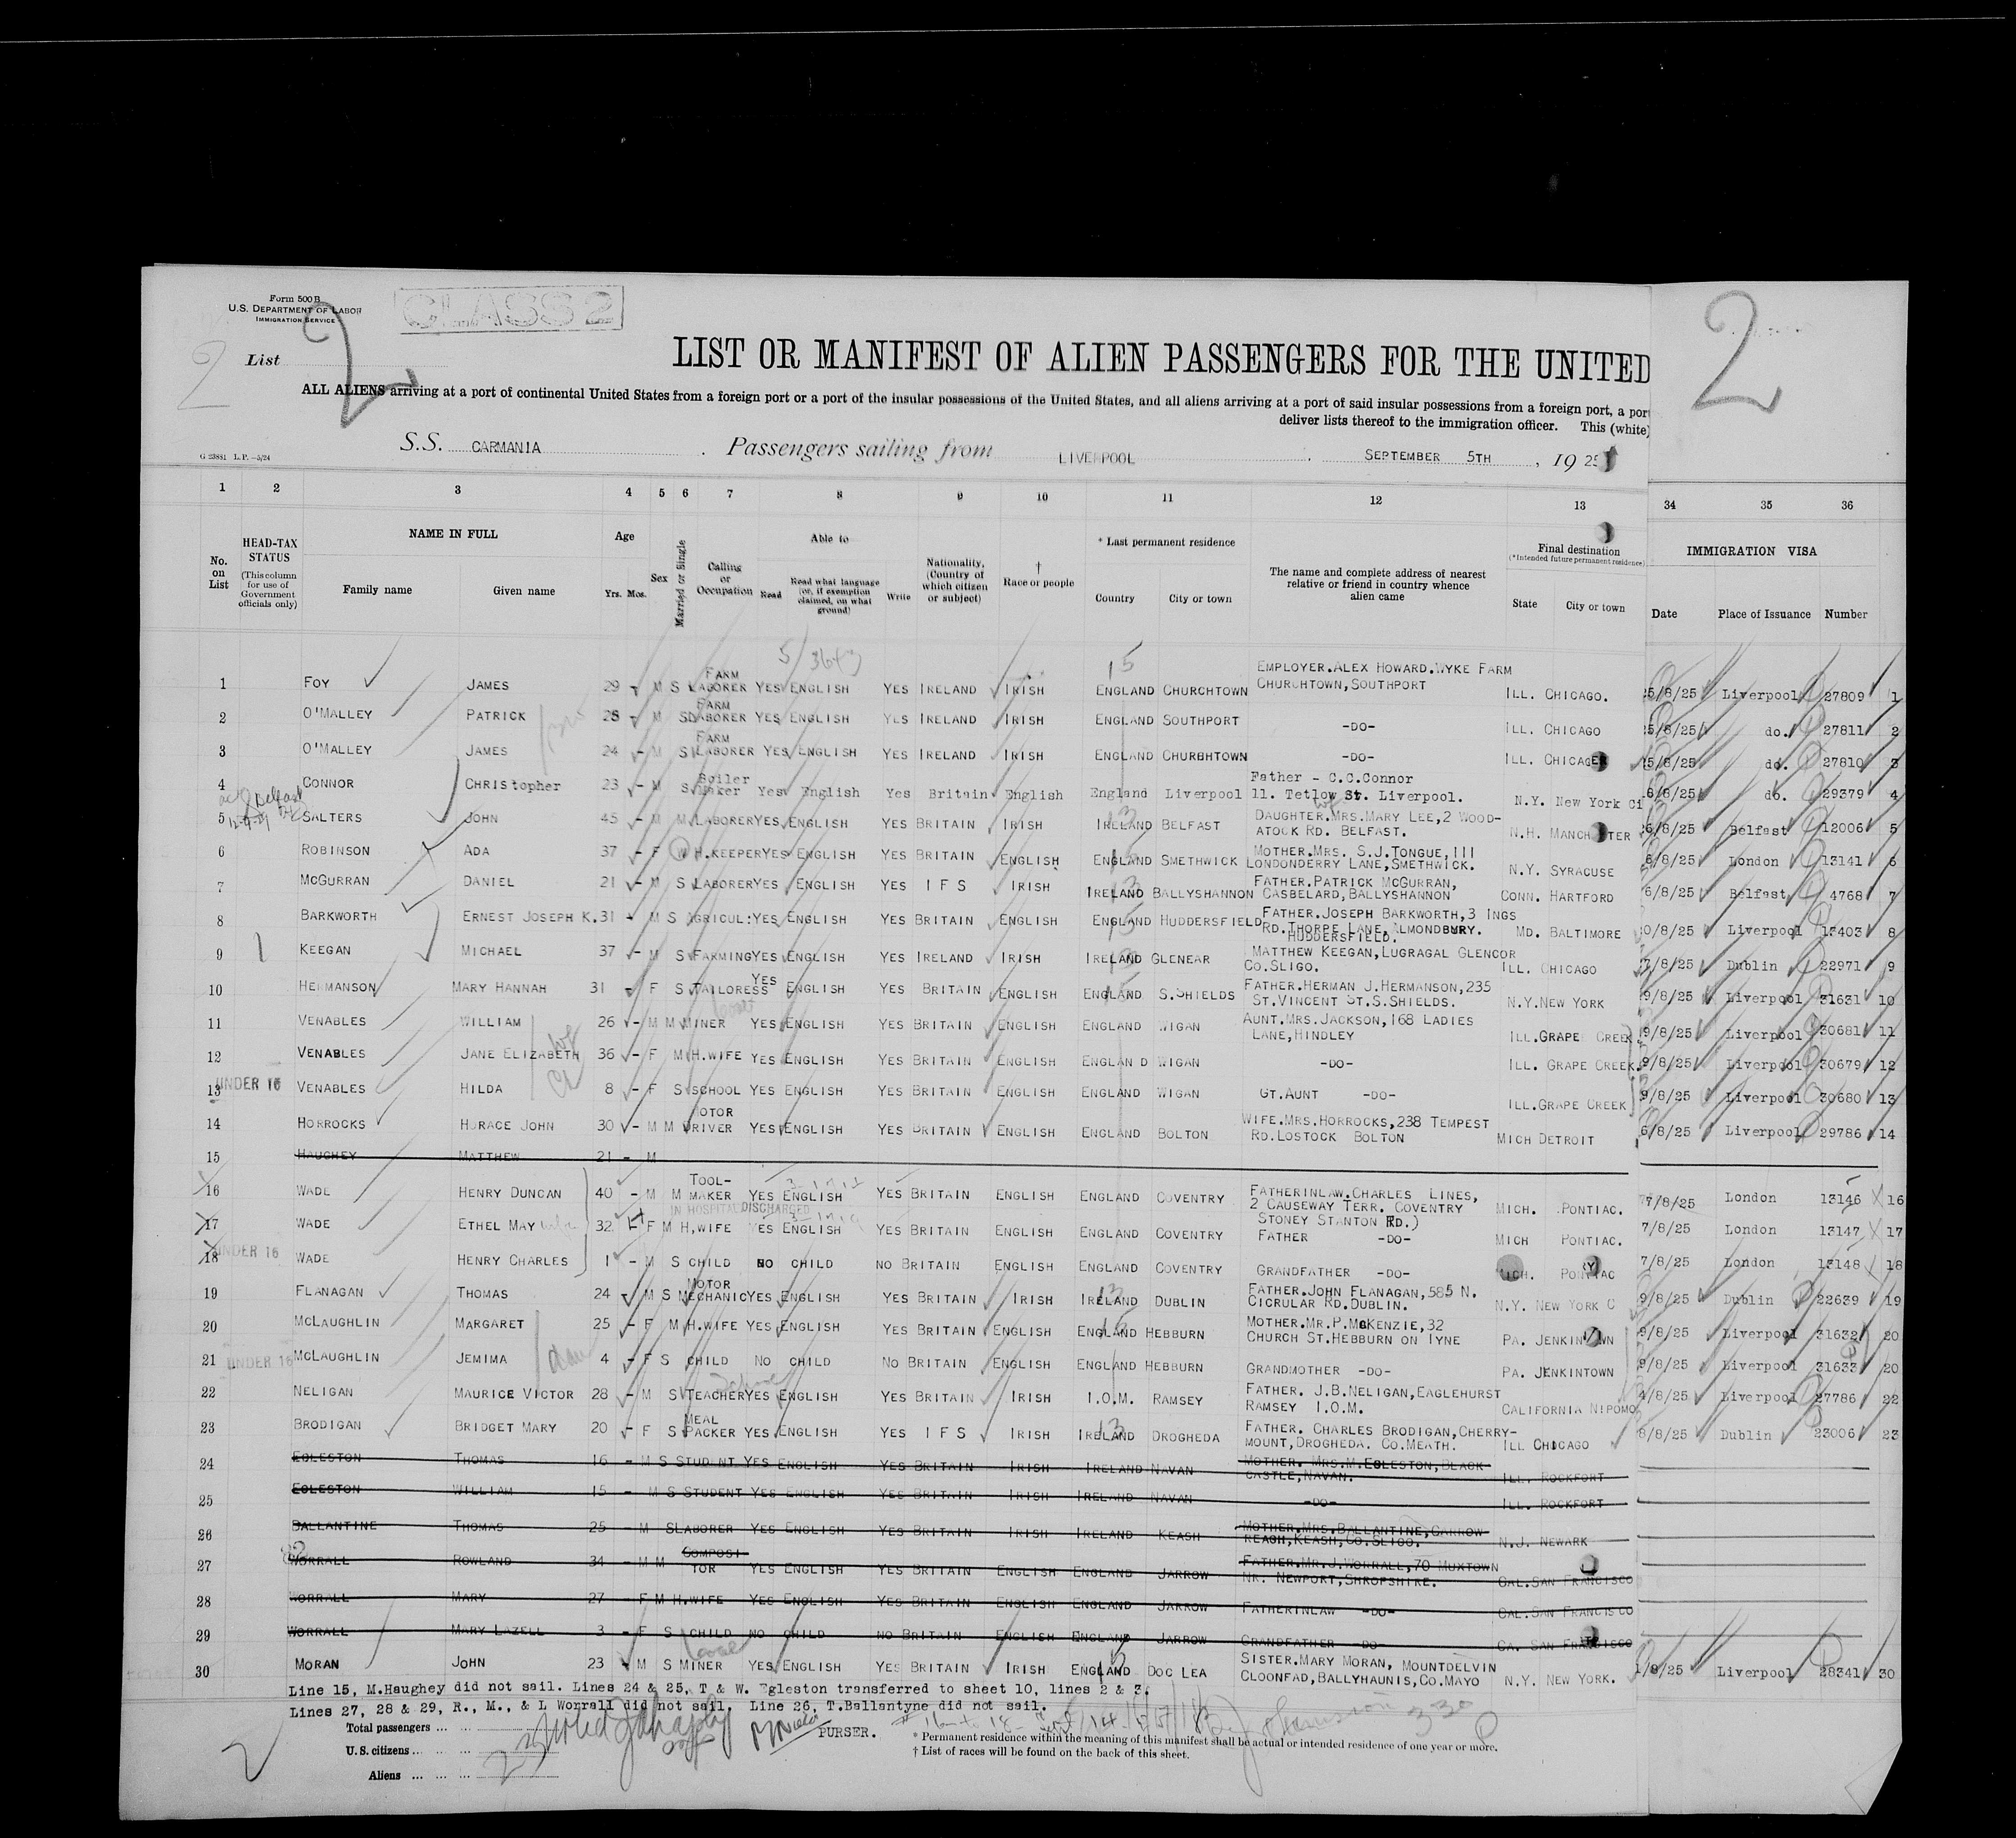 Form 500 B
U.S. DEPARTMENT OF LABOR
IMMIGRATION SERVICE
CLASS 2
2 List 2
2
LIST OR MANIFEST OF ALIEN PASSENGERS FOR THE UNITED
ALL ALIENS arriving at a port of continental United States from a foreign port or a port of the insular possessions of the United States, and all aliens arriving at a port of said insular possessions from a foreign port, a por
deliver lists thereof to the immigration officer. This (white)
S.S. CARMANIA Passengers sailing from LIVERPOOL SEPTEMBER 5TH, 1925
G 23881 L.P.—5/24
1 2 3 4 5 6 7 8 9 10 11 12 13 34 35 36
No. on List
HEAD-TAX STATUS (This column for use of Government officials only)
NAME IN FULL Family name Given name
Age Yrs. Mos.
Sex
Married or Single
Calling or Occupation
Able to Read Read what language (or, if exemption claimed, on what ground) Write
Nationality. (Country of which citizen or subject)
† Race or people
* Last permanent residence Country City or town
The name and complete address of nearest relative or friend in country whence alien came
Final destination (*Intended future permanent residence) State City or town
IMMIGRATION VISA Date Place of Issuance Number
5/3643 15
1 FOY JAMES 29 - M S FARM LABORER YES ENGLISH YES IRELAND IRISH ENGLAND CHURCHTOWN EMPLOYER.ALEX HOWARD.WYKE FARM CHURCHTOWN,SOUTHPORT ILL. CHICAGO. 5/8/25 Liverpool 27809 1
2 O'MALLEY PATRICK 28 - M S FARM LABORER YES ENGLISH YES IRELAND IRISH ENGLAND SOUTHPORT -DO- ILL. CHICAGO 5/8/25 do. 27811 2
3 O'MALLEY JAMES 24 - M S FARM LABORER YES ENGLISH YES IRELAND IRISH ENGLAND CHURBHTOWN -DO- ILL. CHICAGO 5/8/25 do. 27810 3
4 CONNOR CHRIStopher 23 - M S Boiler Maker Yes English Yes Britain English England Liverpool Father - C.C.Connor 11. Tetlow St. Liverpool. N.Y. New York Ci 6/8/25 do. 29379 4
5 SALTERS JOHN 45 - M M LABORER YES ENGLISH YES BRITAIN IRISH IRELAND BELFAST DAUGHTER.MRS.MARY LEE,2 WOOD-ATOCK RD. BELFAST. N.H. MANCHESTER 6/8/25 Belfast 12006 5
6 ROBINSON ADA 37 - F W H.KEEPER YES ENGLISH YES BRITAIN ENGLISH ENGLAND SMETHWICK MOTHER.MRS. S.J.TONGUE,111 LONDONDERRY LANE,SMETHWICK. N.Y. SYRACUSE 6/8/25 London 13141 6
7 MCGURRAN DANIEL 21 - M S LABORER YES ENGLISH YES I F S IRISH IRELAND BALLYSHANNON FATHER.PATRICK MCGURRAN, CASBELARD,BALLYSHANNON CONN. HARTFORD 6/8/25 Belfast 4768 7
8 BARKWORTH ERNEST JOSEPH K. 31 - M S AGRICUL: YES ENGLISH YES BRITAIN ENGLISH ENGLAND HUDDERSFIELD FATHER.JOSEPH BARKWORTH,3 INGS RD.THORPE LANE,ALMONDBURY. HUDDERSFIELD. MD. BALTIMORE 0/8/25 Liverpool 13403 8
9 KEEGAN MICHAEL 37 - M S FARMING YES ENGLISH YES IRELAND IRISH IRELAND GLENEAR MATTHEW KEEGAN,LUGRAGAL GLENCOR CO.SLIGO. ILL. CHICAGO 7/8/25 Dublin 22971 9
10 HERMANSON MARY HANNAH 31 - F S TAILORESS YES ENGLISH YES BRITAIN ENGLISH ENGLAND S.SHIELDS FATHER.HERMAN J.HERMANSON,235 ST.VINCENT ST.S.SHIELDS. N.Y.NEW YORK 9/8/25 Liverpool 31631 10
11 VENABLES WILLIAM 26 - M M MINER YES ENGLISH YES BRITAIN ENGLISH ENGLAND WIGAN AUNT.MRS.JACKSON,168 LADIES LANE,HINDLEY ILL.GRAPE CREEK 9/8/25 Liverpool 30681 11
12 VENABLES JANE ELIZABETH 36 - F M H.WIFE YES ENGLISH YES BRITAIN ENGLISH ENGLAN D WIGAN -DO- ILL. GRAPE CREEK. 9/8/25 Liverpool 30679 12
13 UNDER 16 VENABLES HILDA 8 - F S SCHOOL YES ENGLISH YES BRITAIN ENGLISH ENGLAND WIGAN GT.AUNT -DO- ILL.GRAPE CREEK 9/8/25 Liverpool 30680 13
14 HORROCKS HORACE JOHN 30 - M M MOTOR DRIVER YES ENGLISH YES BRITAIN ENGLISH ENGLAND BOLTON WIFE.MRS.HORROCKS,238 TEMPEST RD.LOSTOCK BOLTON MICH DETROIT 6/8/25 Liverpool 29786 14
15 HAUGHEY MATTHEW 21 - M
16 WADE HENRY DUNCAN 40 - M M TOOL-MAKER YES ENGLISH YES BRITAIN ENGLISH ENGLAND COVENTRY FATHERINLAW.CHARLES LINES, 2 CAUSEWAY TERR. COVENTRY STONEY STANTON RD.) MICH. PONTIAC. 7/8/25 London 13146 16
IN HOSPITAL DISCHARGED
17 WADE ETHEL MAY 32 - F M H.WIFE YES ENGLISH YES BRITAIN ENGLISH ENGLAND COVENTRY FATHER -DO- MICH PONTIAC. 7/8/25 London 13147 17
18 UNDER 16 WADE HENRY CHARLES 1 - M S CHILD NO CHILD NO BRITAIN ENGLISH ENGLAND COVENTRY GRANDFATHER -DO- MICH. PONTIAC 7/8/25 London 13148 18
19 FLANAGAN THOMAS 24 - M S MOTOR MECHANIC YES ENGLISH YES BRITAIN IRISH IRELAND DUBLIN FATHER.JOHN FLANAGAN,585 N. CICRULAR RD.DUBLIN. N.Y. NEW YORK C 9/8/25 Dublin 22639 19
20 MCLAUGHLIN MARGARET 25 - F M H.WIFE YES ENGLISH YES BRITAIN ENGLISH ENGLAND HEBBURN MOTHER.MR.P.MCKENZIE,32 CHURCH ST.HEBBURN ON TYNE PA. JENKINTOWN 9/8/25 Liverpool 31632 20
21 UNDER 16 MCLAUGHLIN JEMIMA 4 - F S CHILD NO CHILD NO BRITAIN ENGLISH ENGLAND HEBBURN GRANDMOTHER -DO- PA. JENKINTOWN 9/8/25 Liverpool 31633 20
22 NELIGAN MAURICE VICTOR 28 - M S TEACHER YES ENGLISH YES BRITAIN IRISH I.O.M. RAMSEY FATHER. J.B.NELIGAN,EAGLEHURST RAMSEY I.O.M. CALIFORNIA NIPOMO 4/8/25 Liverpool 27786 22
23 BRODIGAN BRIDGET MARY 20 - F S MEAL PACKER YES ENGLISH YES I F S IRISH IRELAND DROGHEDA FATHER. CHARLES BRODIGAN,CHERRY-MOUNT,DROGHEDA. CO.MEATH. ILL CHICAGO 8/8/25 Dublin 23006 23
24 EGLESTON THOMAS 16 - M S STUDENT YES ENGLISH YES BRITAIN IRISH IRELAND NAVAN MOTHER. MRS.M.EGLESTON,BLACK CASTLE,NAVAN. ILL. ROCKFORT
25 EGLESTON WILLIAM 15 - M S STUDENT YES ENGLISH YES BRITAIN IRISH IRELAND NAVAN -DO- ILL. ROCKFORT
26 BALLANTINE THOMAS 25 - M S LABORER YES ENGLISH YES BRITAIN IRISH IRELAND KEASH MOTHER.MRS.BALLANTINE,CARROW REAGH,KEASH,CO.SLIGO. N.J. NEWARK
27 WORRALL ROWLAND 34 - M M COMPOSI-TOR YES ENGLISH YES BRITAIN ENGLISH ENGLAND JARROW FATHER.MR.J.WORRALL,70 MUXTOWN NR. NEWPORT,SHROPSHIRE. CAL.SAN FRANCISCO
28 WORRALL MARY 27 - F M H.WIFE YES ENGLISH YES BRITAIN ENGLISH ENGLAND JARROW FATHERINLAW -DO- CAL.SAN FRANCISCO
29 WORRALL MARY LAZELL 3 - F S CHILD NO CHILD NO BRITAIN ENGLISH ENGLAND JARROW GRANDFATHER -DO- CA. SAN FRANCISCO
30 MORAN JOHN 23 - M S MINER YES ENGLISH YES BRITAIN IRISH ENGLAND DOC LEA SISTER.MARY MORAN, MOUNTDELVIN CLOONFAD,BALLYHAUNIS,CO.MAYO N.Y. NEW YORK. 1/8/25 Liverpool 28341 30
Line 15, M.Haughey did not sail. Lines 24 & 25, T & W. Egleston transferred to sheet 10, lines 2 & 3.
Lines 27, 28 & 29, R., M., & L Worrall did not sail. Line 26, T.Ballantyne did not sail.
Total passengers
PURSER.
U.S. citizens
Aliens
* Permanent residence within the meaning of this manifest shall be actual or intended residence of one year or more.
† List of races will be found on the back of this sheet.